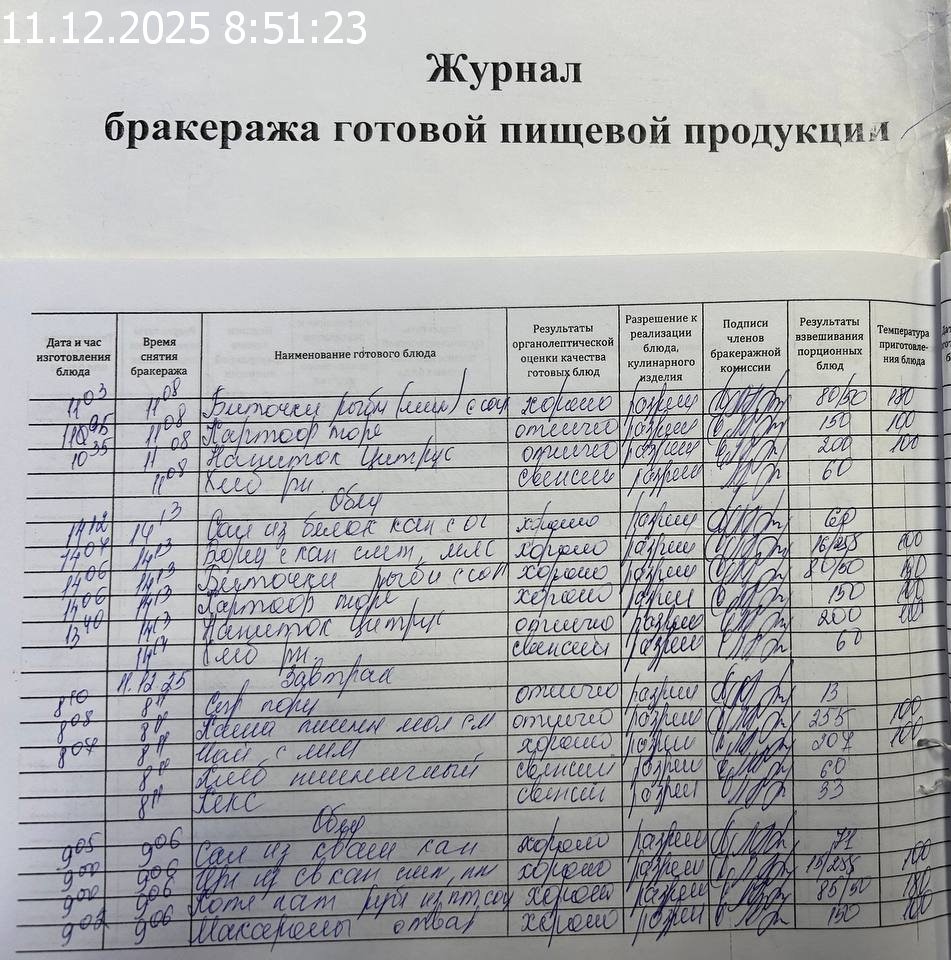 11.12.2025 8:51:23
Журнал
бракеража готовой пищевой продукции
Дата и час изготовления блюда Время снятия бракеража Наименование готового блюда Результаты органолептической оценки качества готовых блюд Разрешение к реализации блюда, кулинарного изделия Подписи членов бракеражной комиссии Результаты взвешивания порционных блюд Температура приготовления блюда
11 03 11 08 Биточки рыбн (мин) с соу хорошо разреш 80/50 180
11 08 Картоф пюре отлично разреш 150 100
10 35 11 08 Напиток Цитрус отлично разреш 200 100
11 08 Хлеб рж. свежий разреш 60
Обед
14 12 14 13 Сал из белок кап с ог хорошо разреш 60
14 07 14 13 Борщ с кап смет, мяс хорошо разреш 100
14 06 14 13 Биточки рыбн с соу хорошо разреш 80/50
14 06 14 13 Картоф пюре хорошо разреш 150 100
13 40 14 13 Напиток Цитрус отлично разреш 200 100
14 14 Хлеб рж. свежий разреш 60
11.12.25 Завтрак
8 10 8 11 Сыр порц отлично разреш 13
8 08 8 11 Каша пшенн мол с м отлично разреш 255 100
8 07 8 11 Чай с лим хорошо разреш 207 100
8 11 Хлеб пшеничный свежий разреш 60
8 11 Кекс свежий разреш 33
Обед
9 05 9 06 Сал из кваш кап хорошо разреш 77
9 00 9 06 Щи из св кап смет, хорошо разреш 15/255 100
9 00 9 06 Котл хорошо разреш 85/50 180
9 02 9 06 Макароны отвар хорошо разреш 150 100